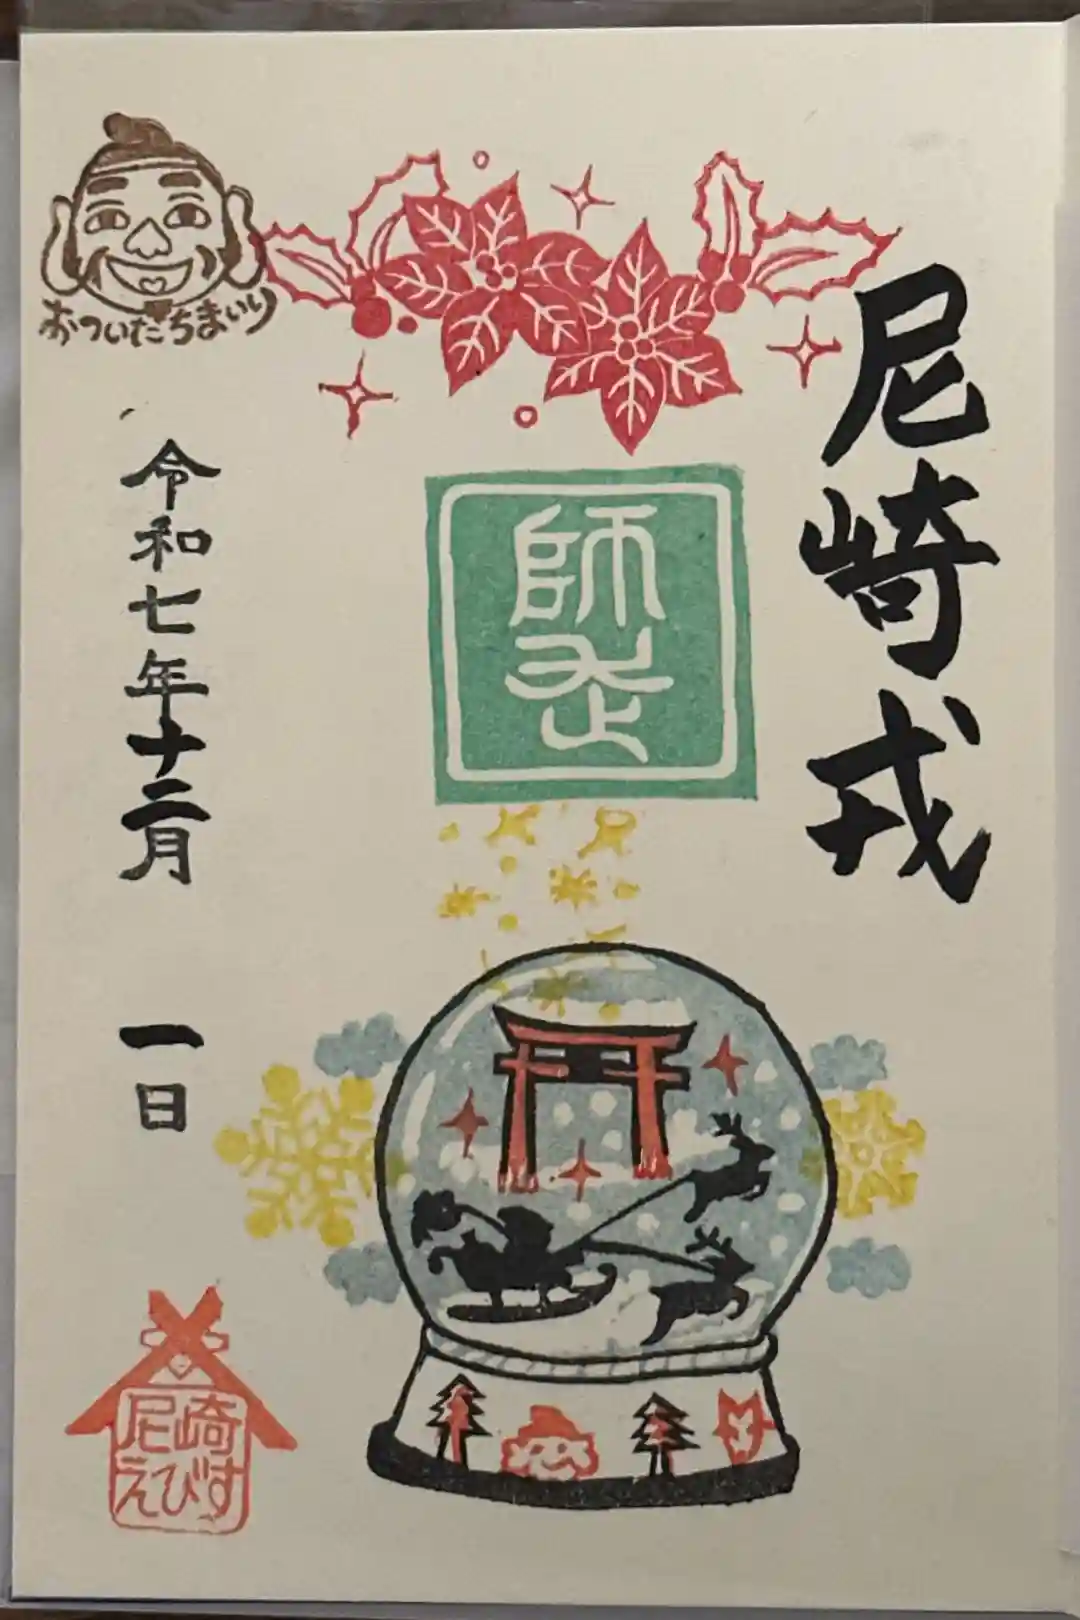 尼崎戎
師走
おついたちまいり
令和七年十二月 一日
尼崎
えびす